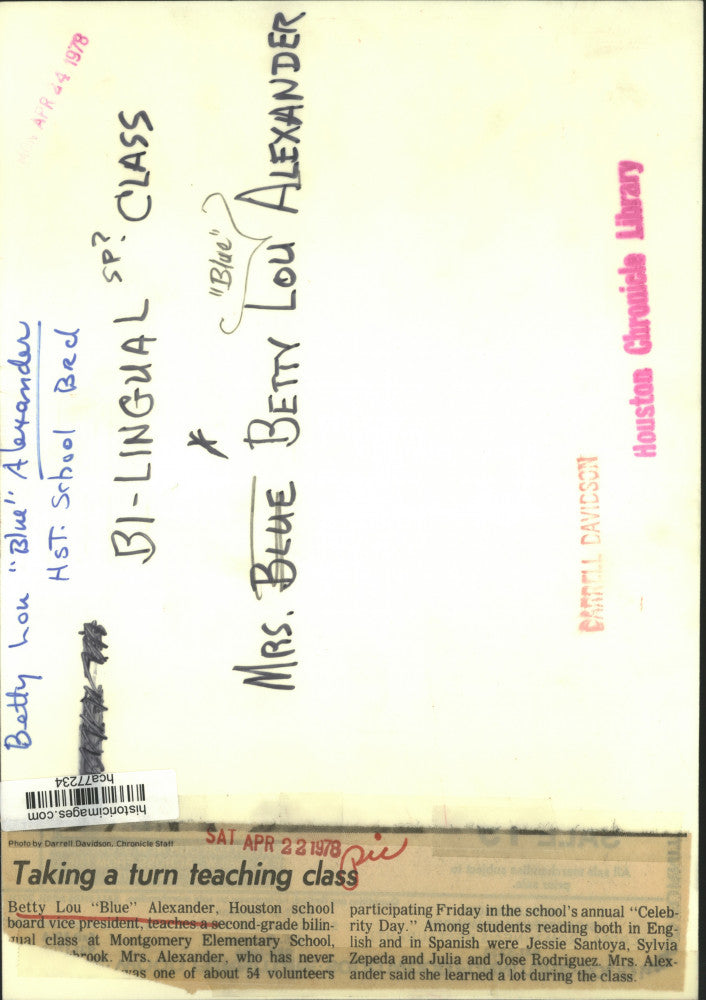 APR 24 1978
Betty Lou "Blue" Alexander
HST. School Brd
BI-LINGUAL SP? CLASS
*
"Blue"
MRS. BLUE BETTY LOU ALEXANDER
DARRELL DAVIDSON
Houston Chronicle Library
hca77234
historicimages.com
Photo by Darrell Davidson, Chronicle Staff
SAT APR 22 1978
pic
Taking a turn teaching class
Betty Lou "Blue" Alexander, Houston school
board vice president, teaches a second-grade bilin-
gual class at Montgomery Elementary School,
brook. Mrs. Alexander, who has never
was one of about 54 volunteers
participating Friday in the school's annual "Celeb-
rity Day." Among students reading both in Eng-
lish and in Spanish were Jessie Santoya, Sylvia
Zepeda and Julia and Jose Rodriguez. Mrs. Alex-
ander said she learned a lot during the class.